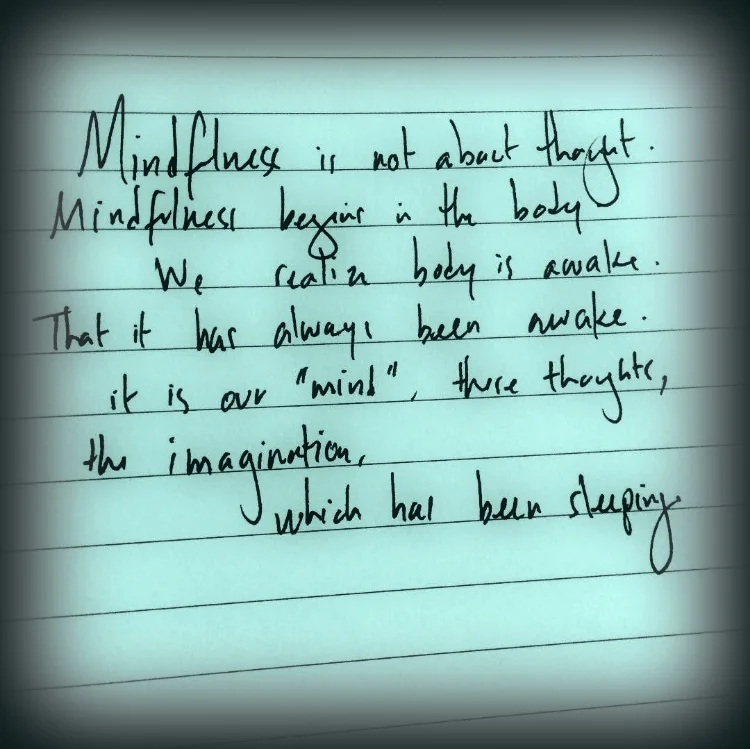 Mindflness is not about thought.
Mindfulness begins in the body
We realize body is awake.
That it has always been awake.
it is our "mind", those thoughts,
the imagination,
which has been sleeping.